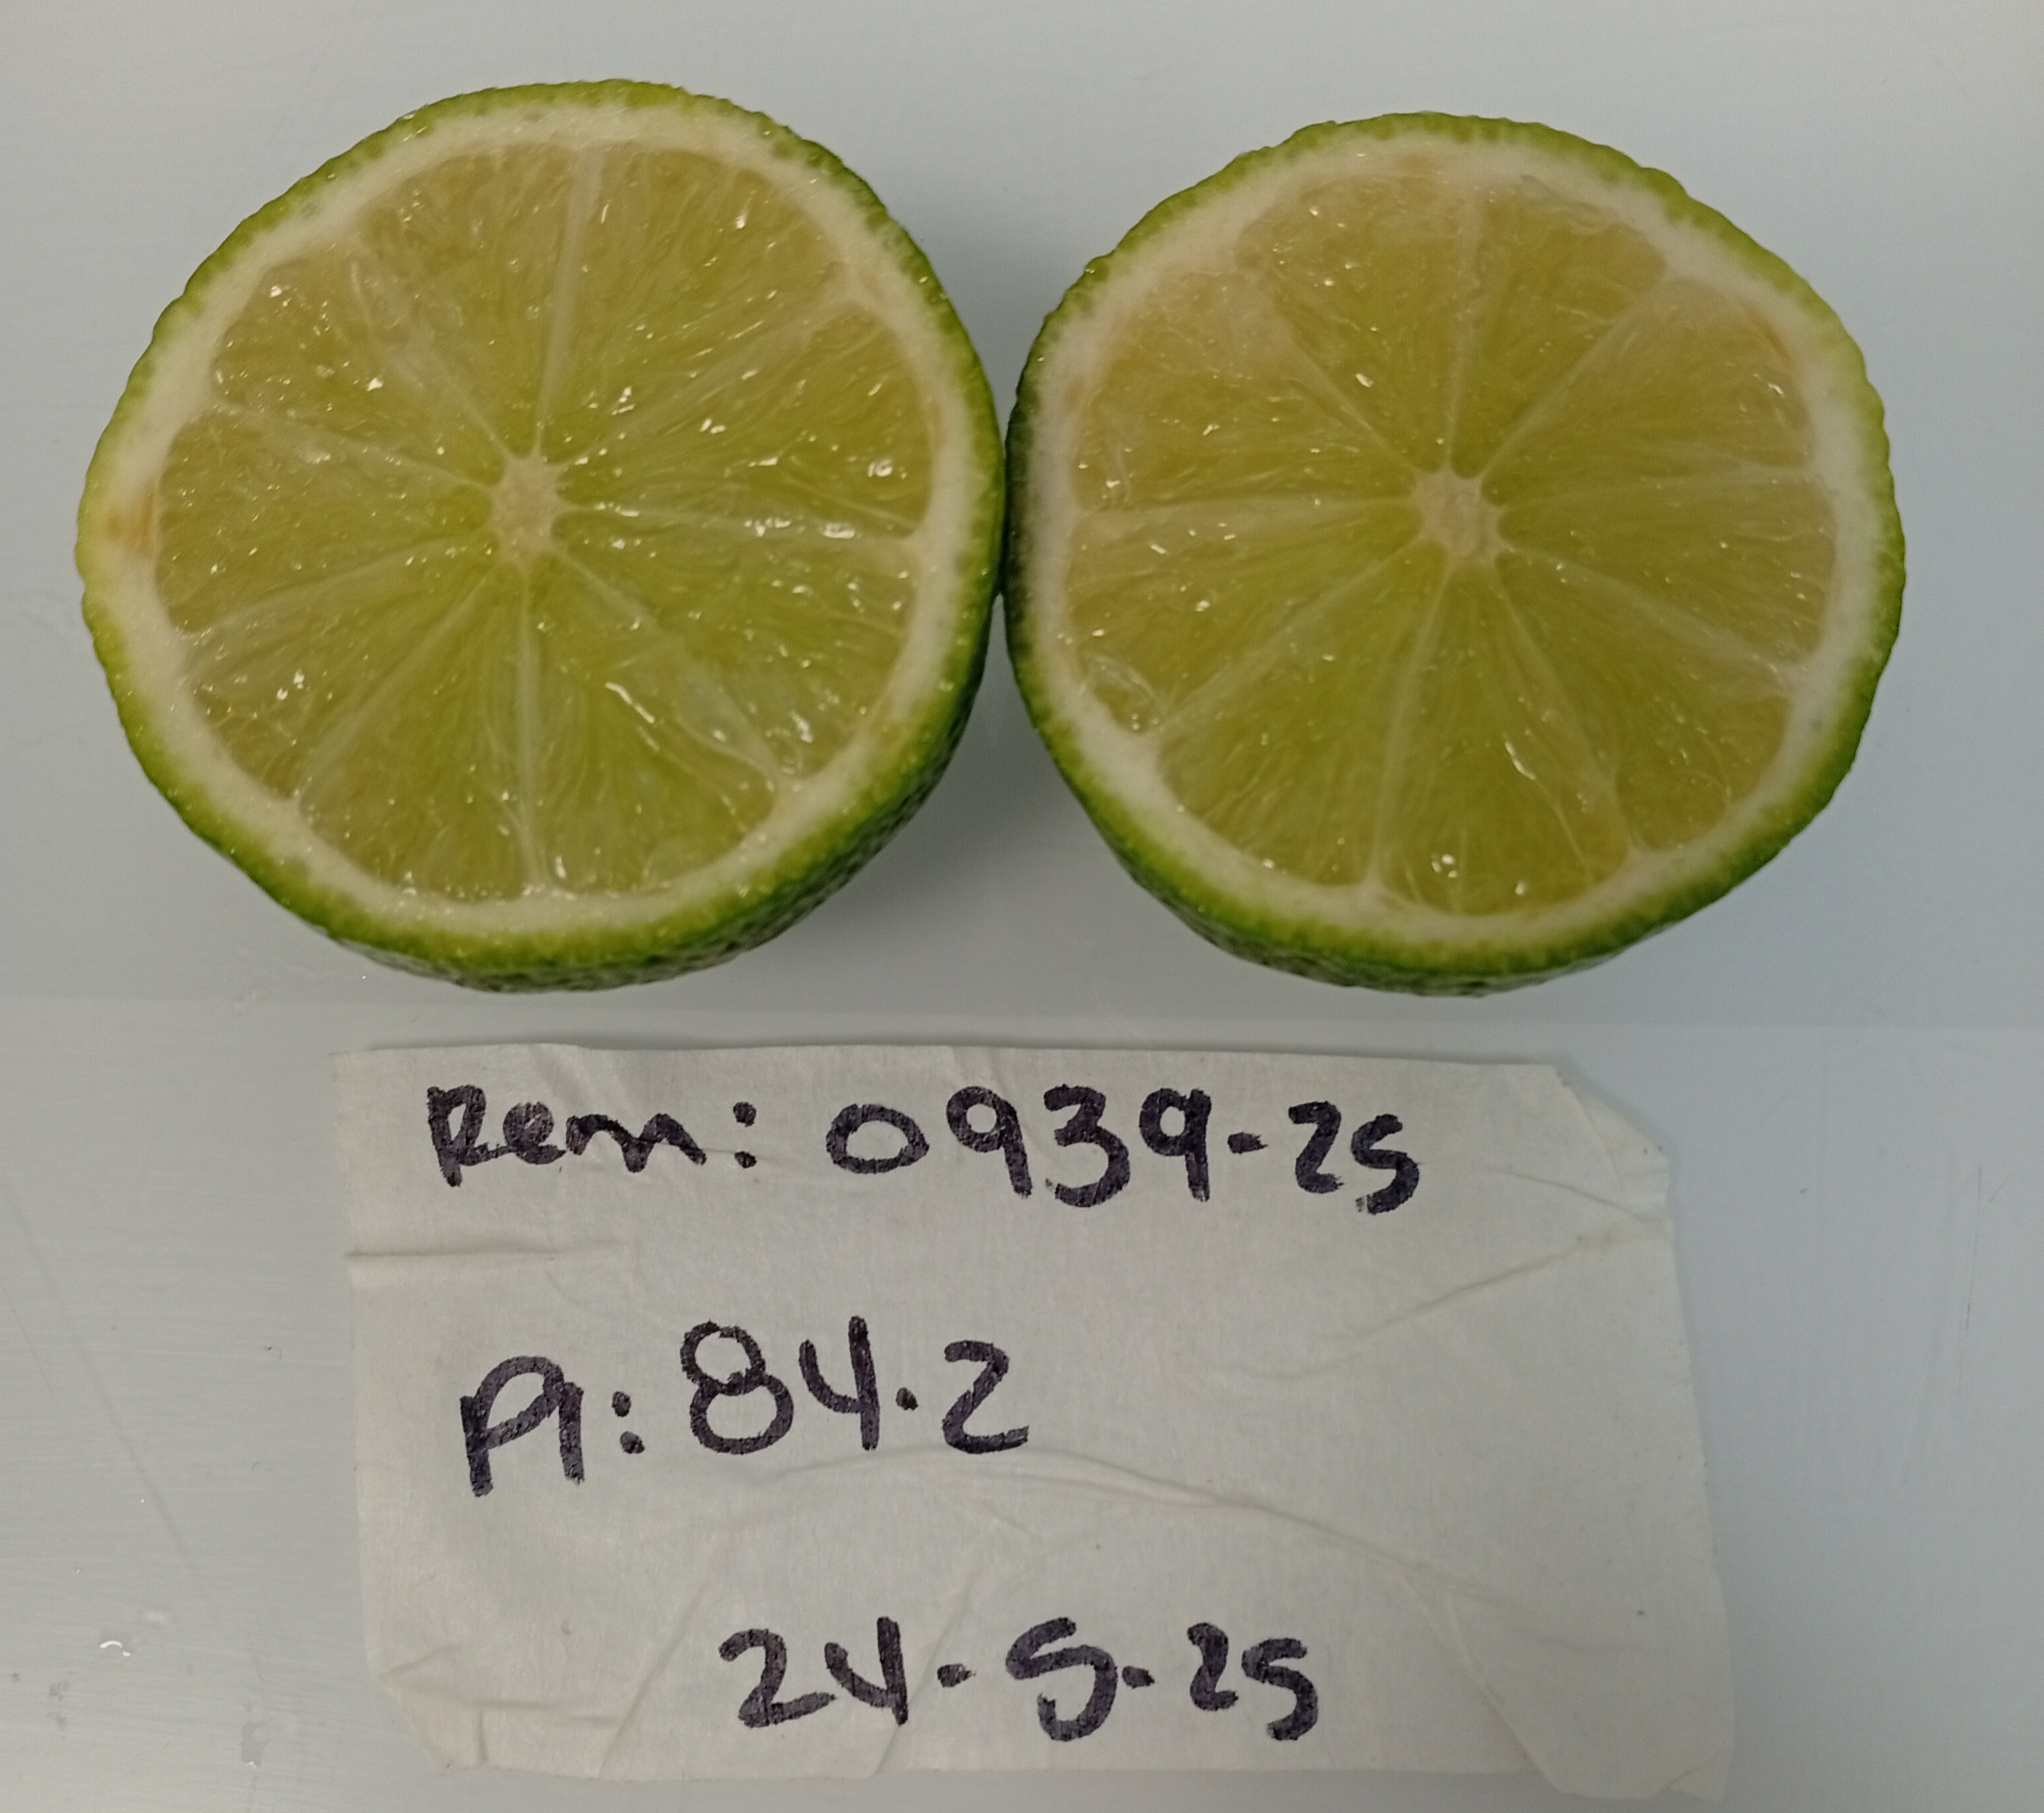 Rem: 0939-25
PI: 84.2
24-5-25